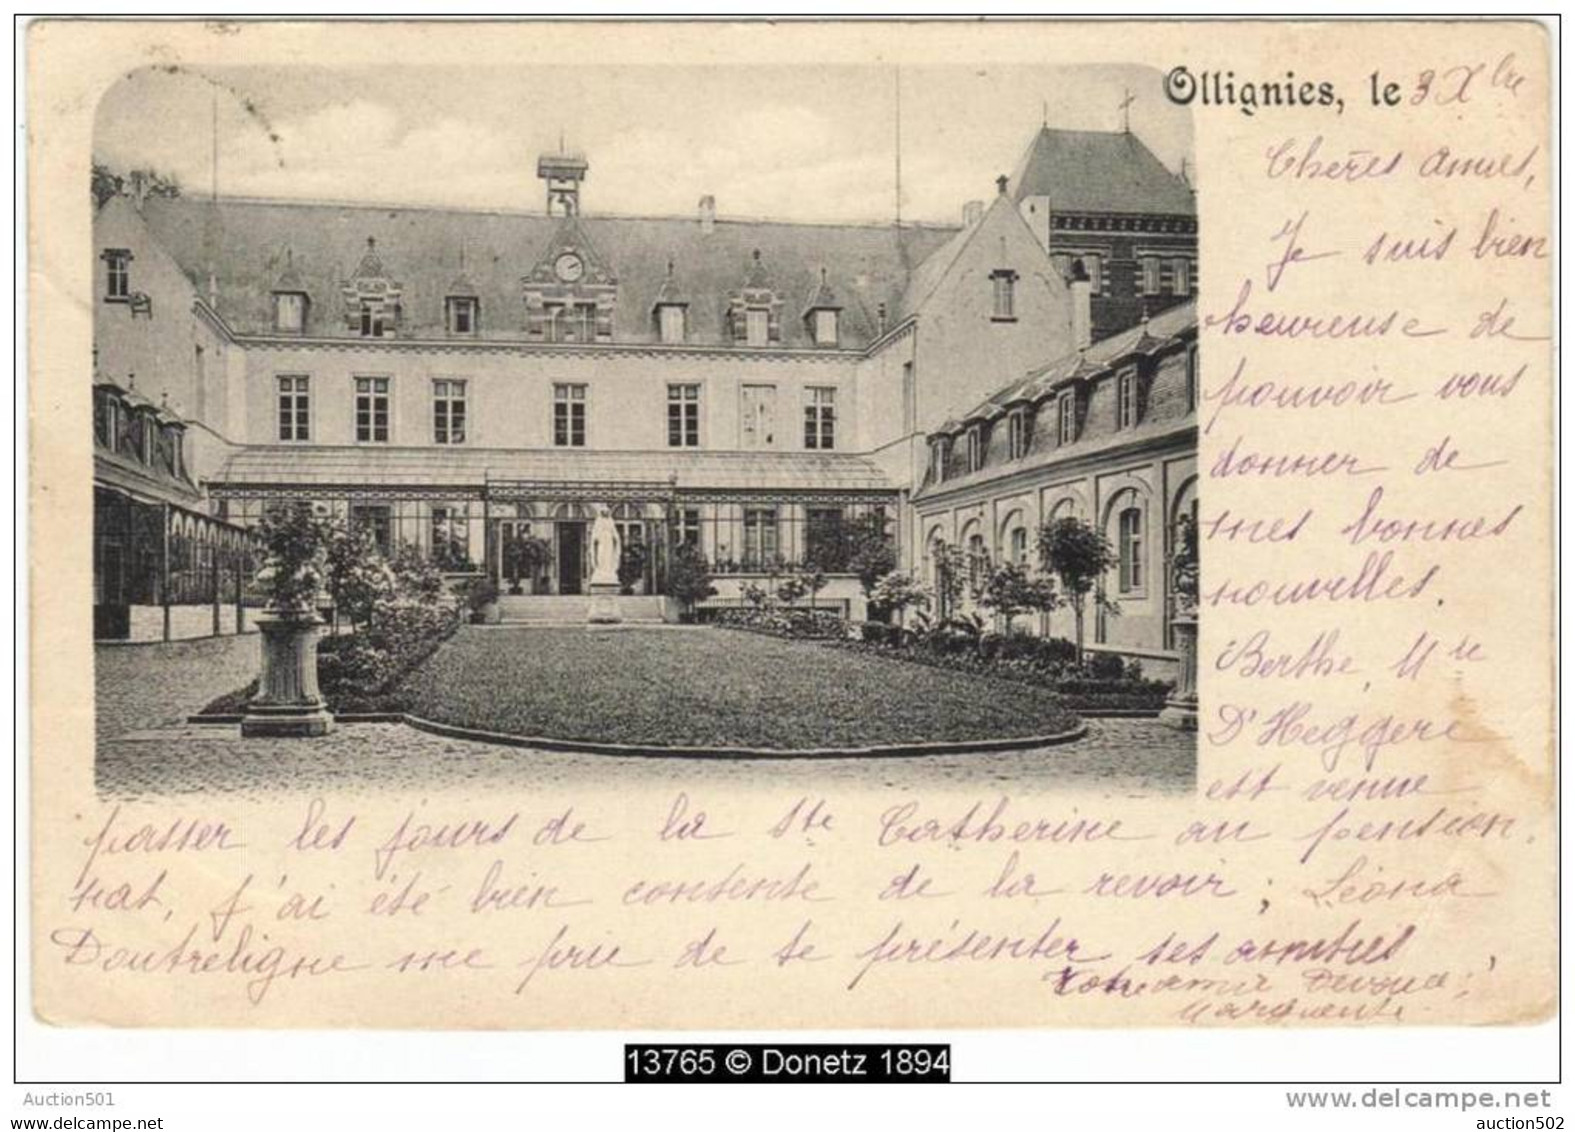 Ollignies, le 3 Xbre
Chères Amies,
Je suis bien
heureuse de
pouvoir vous
donner de
mes bonnes
nouvelles.
Berthe, Mre
D'Heggere
est venue
passer les jours de la Ste Catherine au pension,
nat, j'ai été bien contente de la revoir ; Léona
Doutreligne me prie de te présenter ses amitiés,
Votre amie Dévouée,
Marguerite.
13765 © Donetz 1894
Auction501
www.delcampe.net
auction501
auction502